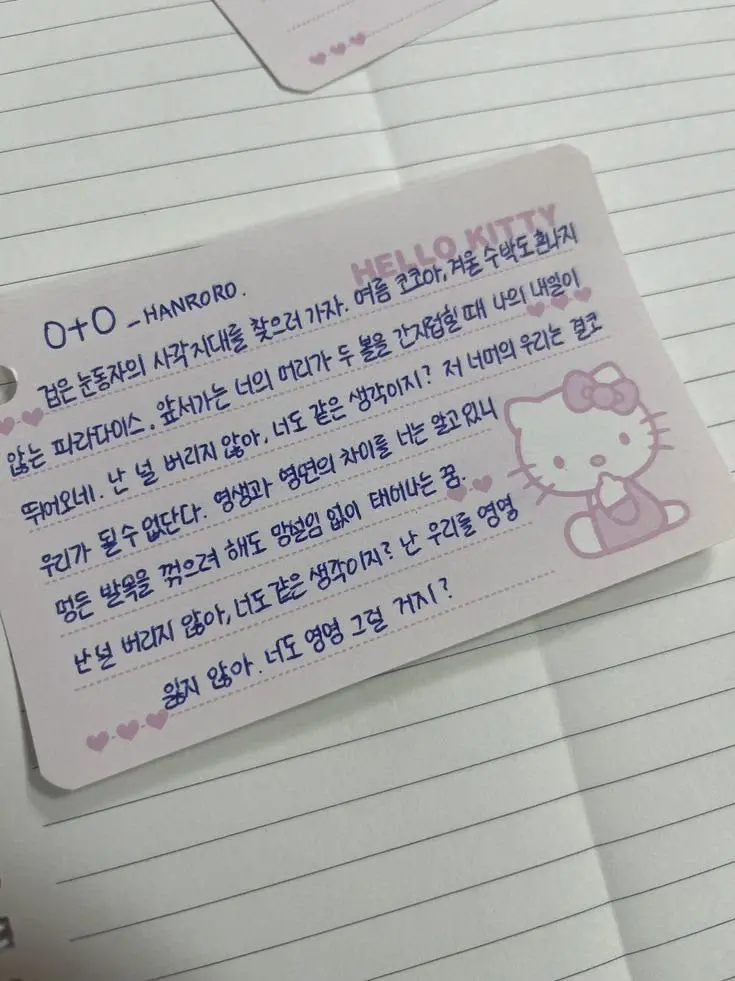 HELLO KITTY
0+0 - HANRORO.
검은 눈동자의 사각지대를 찾으러 가자. 여름 코코아, 겨울 수박도 혼나지
않는 파라다이스. 앞서가는 너의 머리가 두 볼을 간지럽힐 때 나의 내일이
뛰어오네. 난 널 버리지 않아, 너도 같은 생각이지? 저 너머의 우리는 결코
우리가 될 수 없단다. 영생과 영면의 차이를 너는 알고 있니
멍든 발목을 꺾으려 해도 망설임 없이 태어나는 꿈.
난 널 버리지 않아, 너도 같은 생각이지? 난 우리를 영영
잃지 않아. 너도 영영 그럴 거지?